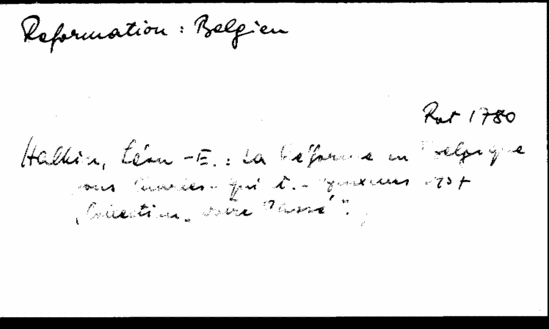 Reformation: Belgien
Rat 1780
Halkin, Léon-E.: La Réforme en Belgique
sous Charles-Quint.-
(Collection „Notre Passé".